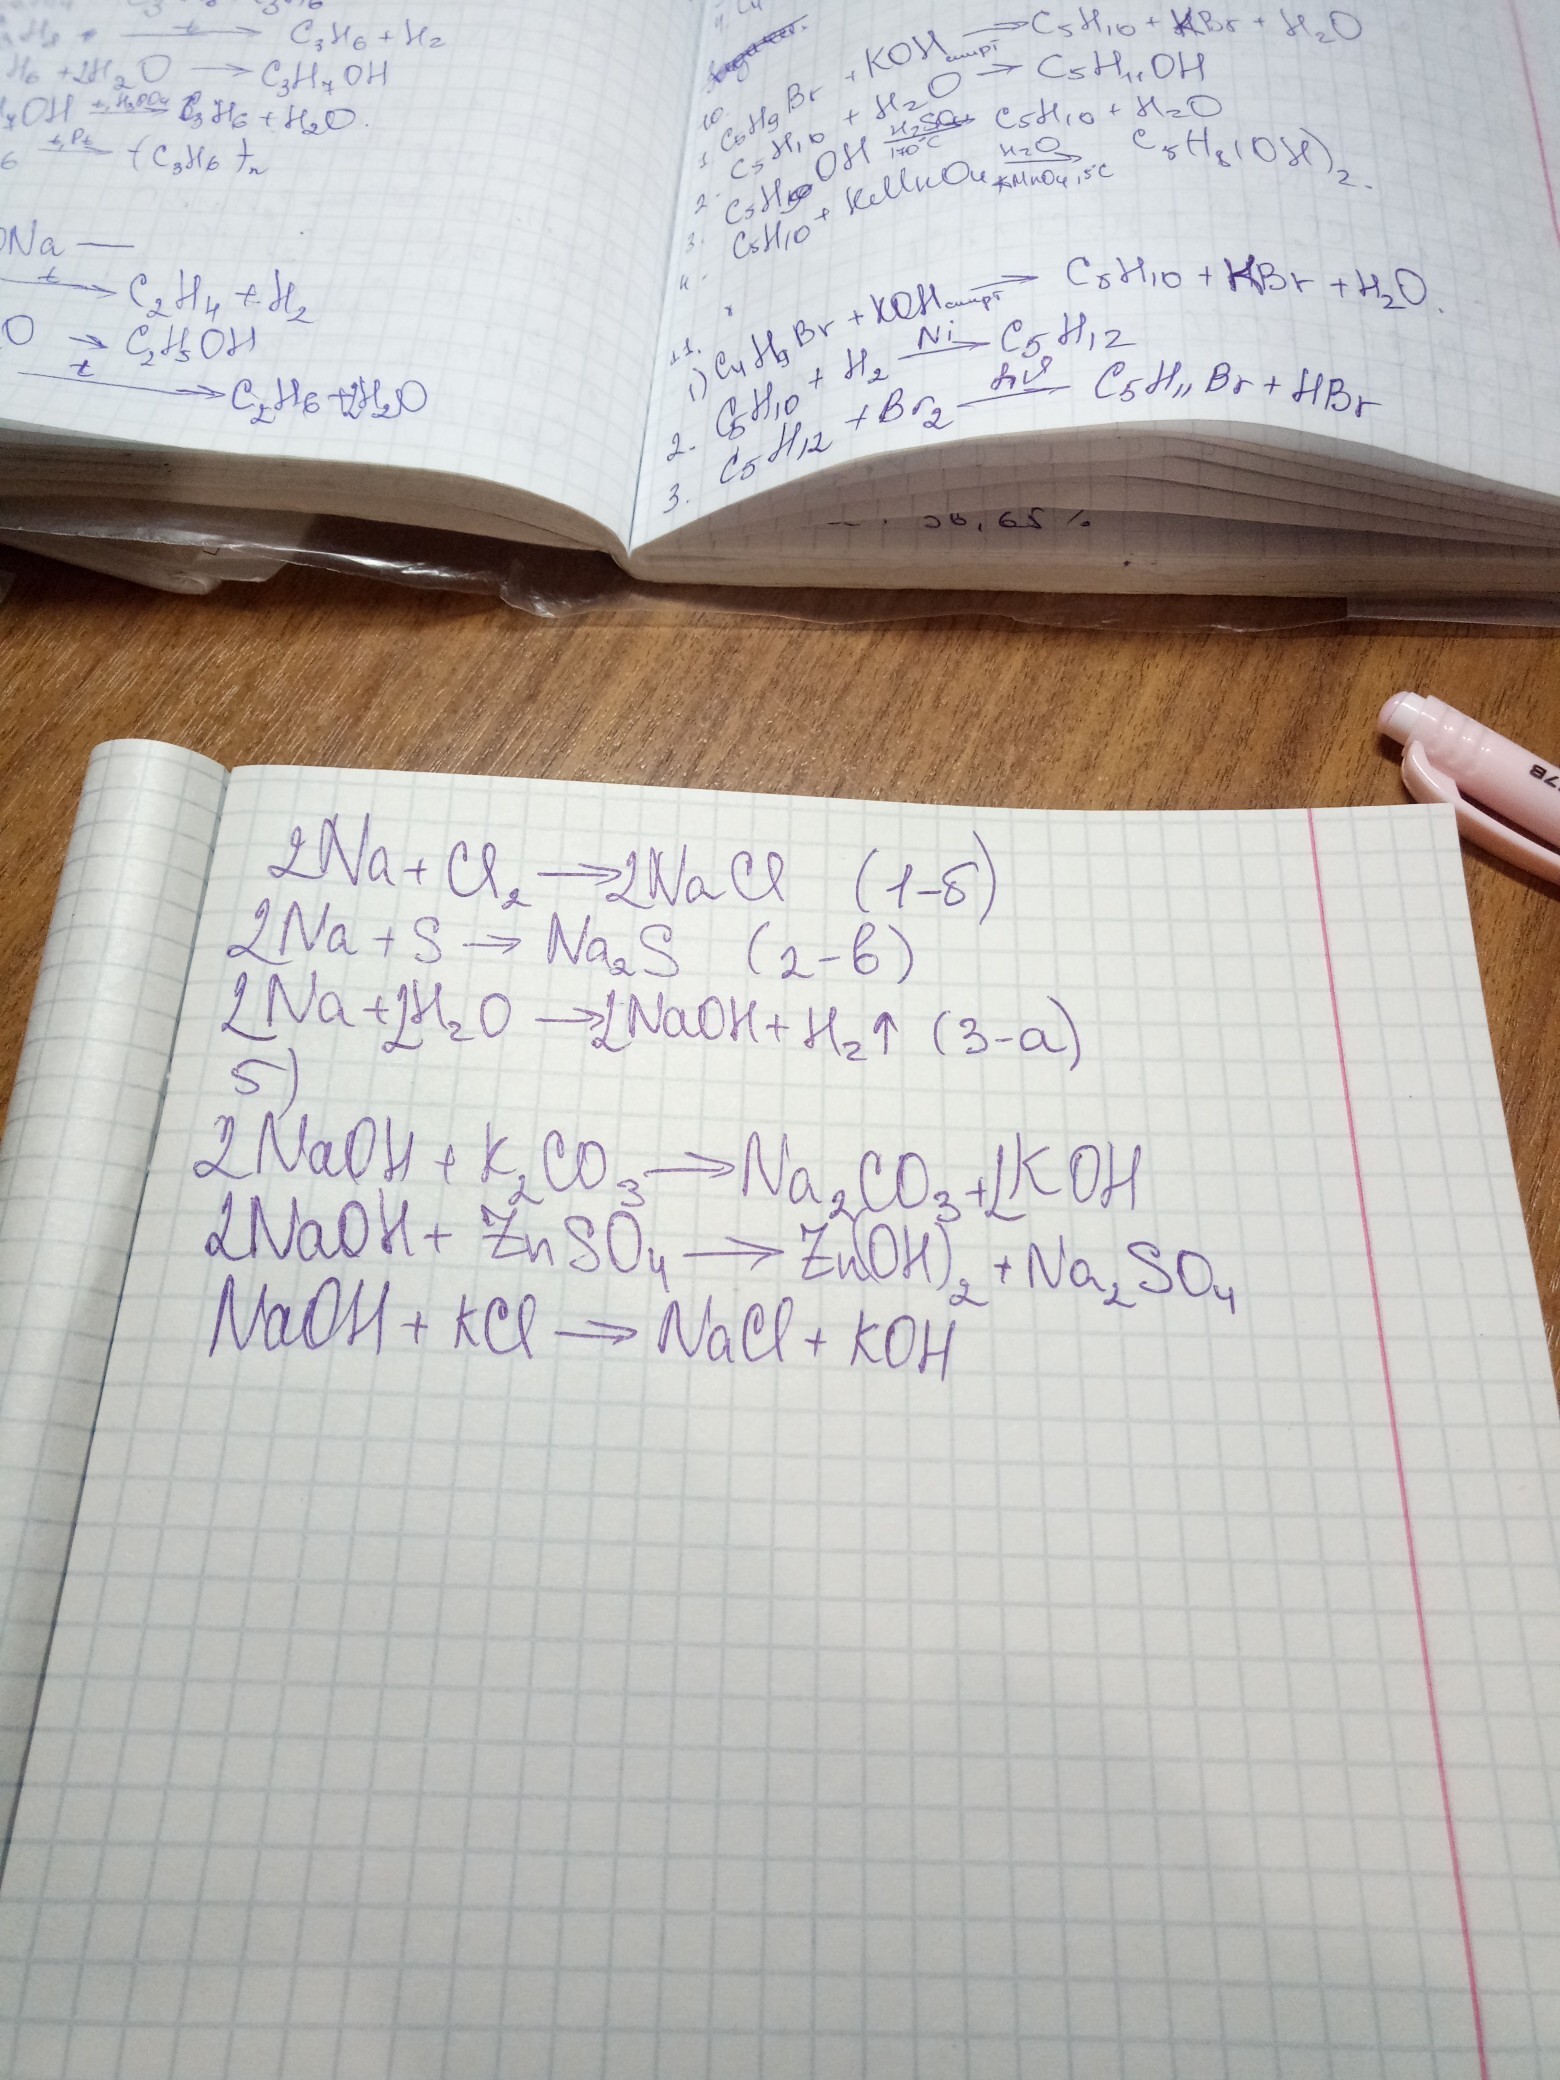 C₃H₆ + H₂
H₆ + H₂O → C₃H₇OH
OH t, H₃PO₄ C₃H₆ + H₂O.
6 t, Pt → (C₃H₆)n
ONa —
t → C₂H₄ + H₂
O → C₂H₅OH
t → C₂H₆ + 2H₂O
10.
1. C₅H₉Br + KOH спирт → C₅H₁₀ + KBr + H₂O
2. C₅H₁₀ + H₂O → C₅H₁₁OH
3. OH H₂SO₄ 170°C → C₅H₁₀ + H₂O
4. C₅H₁₀ + KMnO₄ H₂O KMnO₄, 5°C → C₅H₈(OH)₂.
11.
1) C₄H₉Br + KOH спирт → C₅H₁₀ + KBr + H₂O.
2. C₅H₁₀ + H₂ Ni → C₅H₁₂
3. C₅H₁₂ + Br₂ hν → C₅H₁₁Br + HBr
65 %
77B
2Na + Cl₂ → 2NaCl (1-б)
2Na + S → Na₂S (2-в)
2Na + 2H₂O → 2NaOH + H₂↑ (3-а)
5)
2NaOH + K₂CO₃ → Na₂CO₃ + 2KOH
2NaOH + ZnSO₄ → Zn(OH)₂ + Na₂SO₄
NaOH + KCl → NaCl + KOH